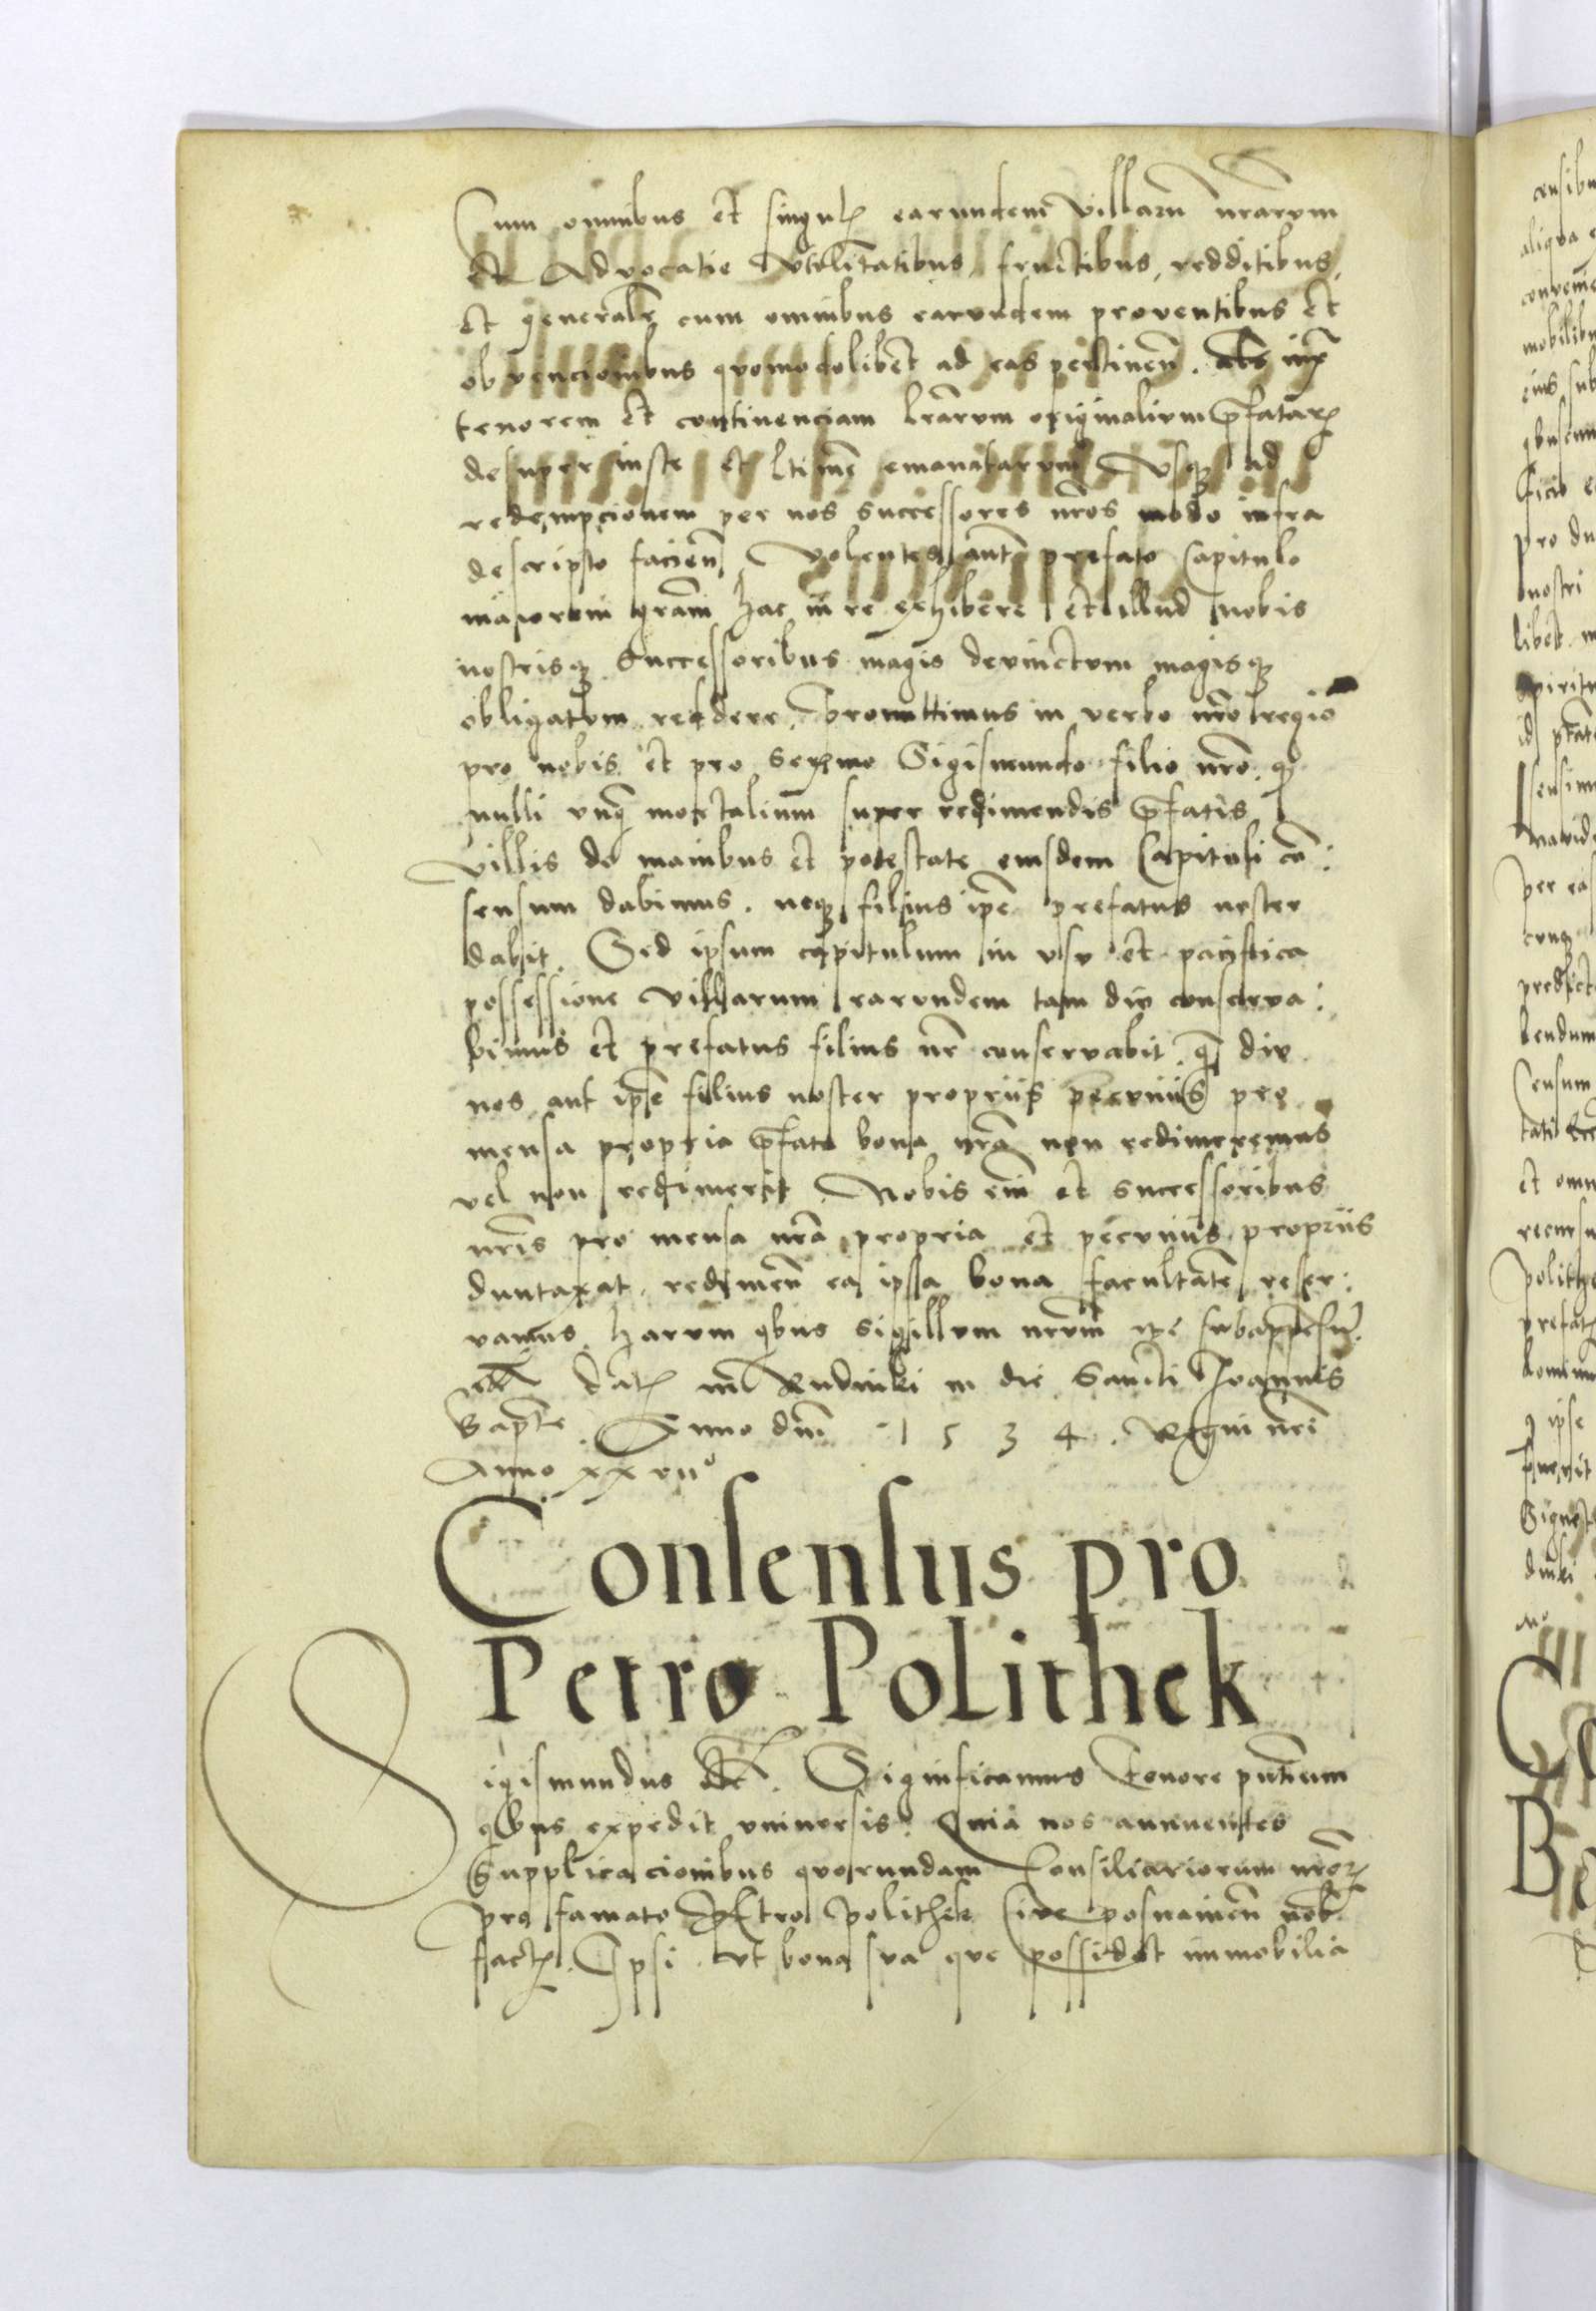 Cum omnibus et singul earundem villarum nrarum
et Advocatie vtilitatibus, fructibus, redditibus,
et generalr cum omnibus earundem proventibus et
obvencionibus quomodolibet ad eas pertinen. iux
tenorem et continenciam lrarum originalium pfatar
desuper iuste et ltime emanatarum vsq ad
redempcionem per nos successores nros modo infra
descripto facien. Volentes aut prefato Capitulo
maiorem gram hac in re exhibere et illud nobis
nostrisq Successoribus magis devinctum magisq
obligatum reddere, promittimus in verbo nro regio
pro nobis et pro Sermo Sigismundo filio nro, q
nulli unq mortalium super redimendis pfatis
villis de manibus et potestate eiusdem Capituli con:
sensum dabimus, neq filius ipe prefatus noster
dabit. Sed ipsum capitulum in vsu et pacifica
possessione villarum earundem tam div conserva:
bimus et prefatus filius nr conservabit, q div
nos aut ipse filius noster propriis pecuniis pro
mensa propria pfata bona nra non redimeremus
vel non redimerit. Nobis eni et successoribus
nris pro mensa nra propria et pecuniis propriis
duntaxat, redimen ea ipsa bona facultatem reser:
vamus. harum qbus sigillum nrum subappensu.
Dat in Rudniki in die Sancti Joannis
Bapte. Anno dni 1534. Regni nri
Anno xxviiº
Consensus pro
Petro Polithek
Sigismundus etc. Significamus tenore pntium
qbus expedit vniversis. Quia nos annuentes
Supplicacionibus quorundam Consiliariorum nror
pro famato Petro polithek Cive posnanien nob
fact. Ipsi vt bona sua que possidet immobilia